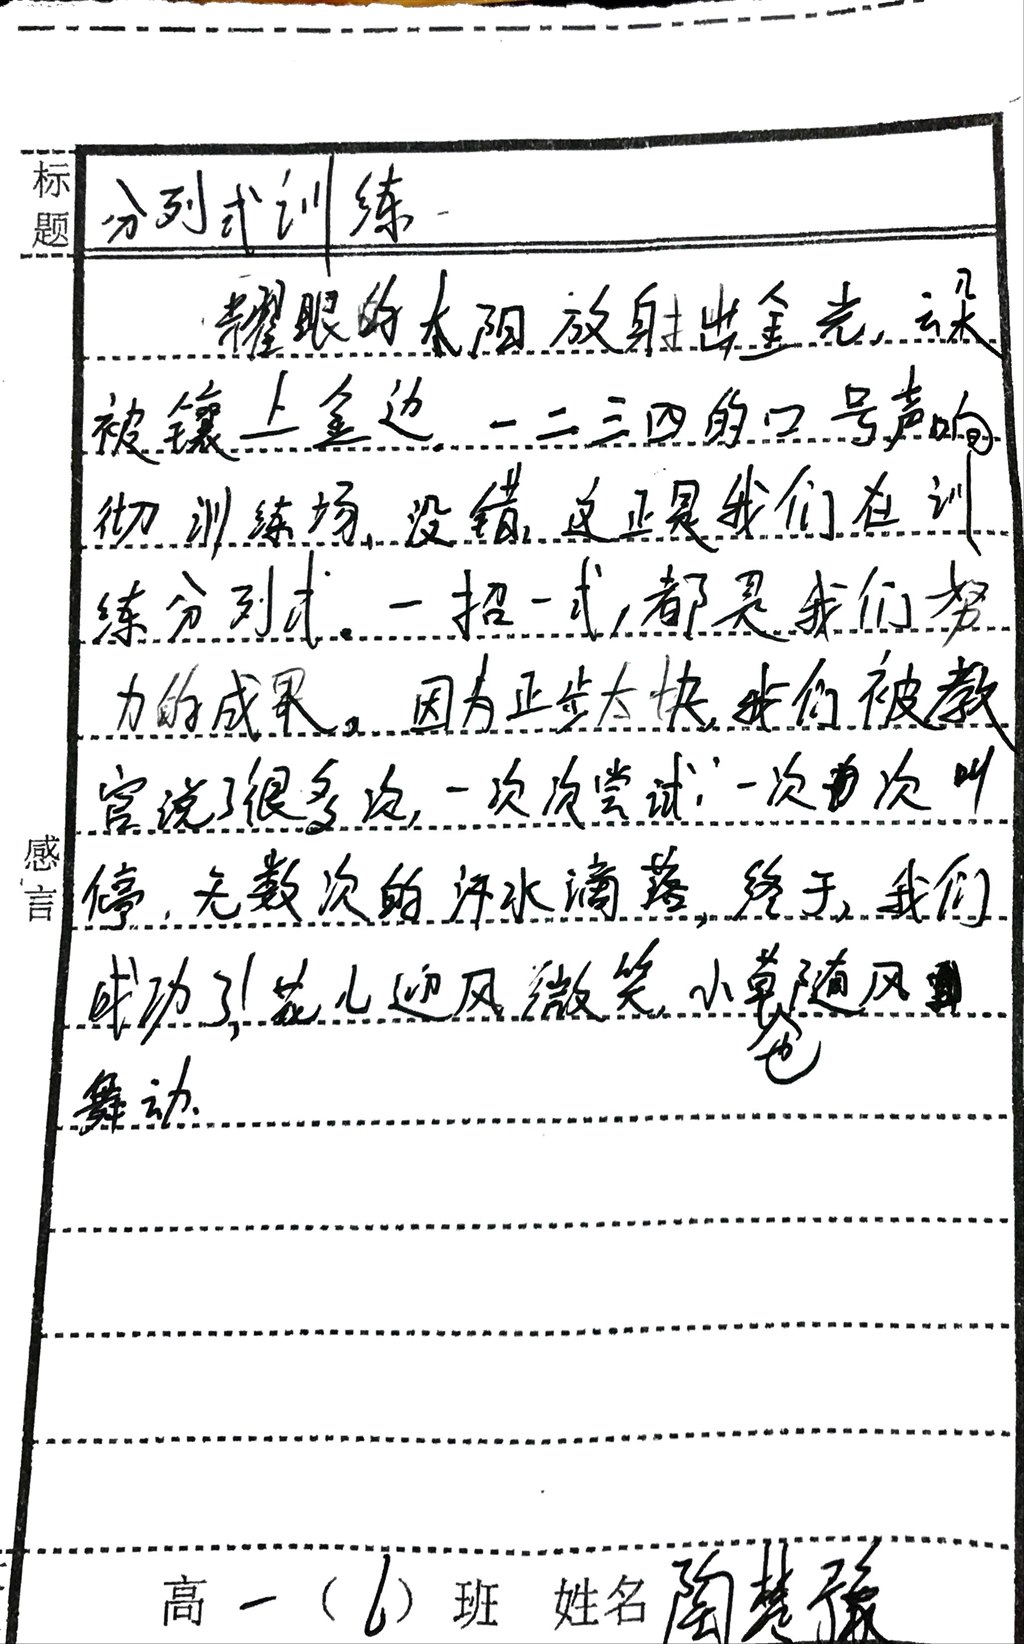 标题 分列式训练
耀眼的太阳放射出金光，云朵
被镶上金边，一二三四的口号声响
彻训练场，没错，这正是我们在训
练分列式。一招一式，都是我们努
力的成果。因为正步太快，我们被教
官说了很多次，一次次尝试，一次次叫
停，无数次的汗水滴落，终于，我们
成功了！花儿迎风微笑，小草也随风
舞动。
感言
高一（6）班 姓名 陶楚